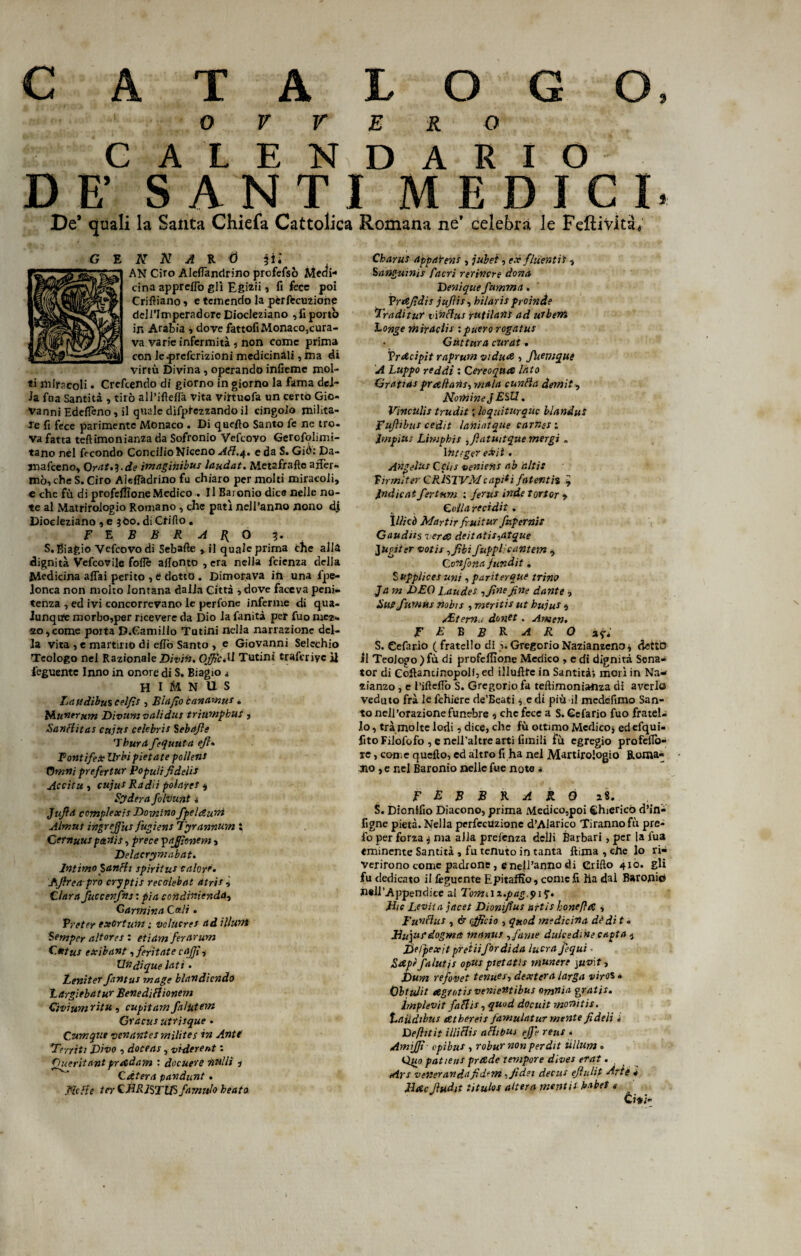 CATALOGO,
OVVERO
CALENDARIO
DE' SANTI MEDICI,
De' quali la Santa Chiesa Cattolica Romana ne' celebra le Festività.
GENNARO 31.
SAN Ciro Alessandrino professò Medi-
cina appresso gli Egizii, si fece poi
Cristiano, e temendo la persecuzione
dell'Imperadore Diocleziano, si portò
in Arabia, dove fattosi Monaco, cura-
va varie infermità, non come prima
con le prescrizioni medicinali, ma di
virtù Divina, operando insieme mol-
ti miracoli. Crescendo di giorno in giorno la fama del-
la sua Santità, tirò all'istessa vita virtuosa un certo Gio-
vanni Edesseno, il quale disprezzando il cingolo milita-
re si fece parimente Monaco. Di questo Santo se ne tro-
va fatta testimonianza da Sofronio Vescovo Gerosolimi-
tano nel secondo Concilio Niceno Act.4. e da S. Giò: Da-
masceno, Orat.3. de imaginibus laudat. Metafraste affer-
mò, che S. Ciro Alessadrino fu chiaro per molti miracoli,
e che fù di professione Medico. Il Baronio dice nelle no-
te al Matrirologio Romano, che patì nell'anno nono di
Diocleziano, e 300. di Cristo.
FEBBRARO 3.
S. Biagio Vescovo di Sebaste, il quale prima che allà
dignità Vescovile fosse assonto, era nella scienza della
Medicina assai perito, e dotto. Dimorava in una spe-
lonca non molto lontana dalla Città, dove faceva peni-
tenza, ed ivi concorrevano le persone inferme di qua-
lunque morbo, per ricevere da Dio la sanità per suo mez-
zo, come porta D. Camillo Tutini nella narrazione del-
la vita, e martirio di esso Santo, e Giovanni Selechio
Teologo nel Razionale Divin. Offic. Il Tutini trascrive il
seguente Inno in onore di S. Biagio.
HIMNUS
Laudibus celsis, Blasio canamus.
Munerum Divum validus triumphus,
Sanctitas cujus celebris Sebaste
Thura sequuta est.
Pontifex Urbi pietate pollens
Omni prefertur Populi fidelis
Accitu, cujus Radii polares
Sydera solvunt.
Justa complexis Domino spelæum
Almus ingressus fugiens Tyrannum;
Cernuus panis, prece passionem,
Delacrymabat.
Intimo Sancti spiritus calore.
Astrea pro cryptis recolebat atris,
Clara succensus: pia condinienda,
Carmina Cœli.
Preter exortum; volucres ad illum
Semper altores: etiam ferarum
Cætus exibant, feritate cassi,
Undique lati.
Leniter fantus mage blandiendo
Largiebatur Benedictionem
Civium ritu, cupitam salutem
Gracus utrisque.
Cumque venantes milites in Ante
Territi Divo, doctas, viderent:
Queritant prædam: docuere nulli,
Cætera pandunt.
Nocte ter CHRISTUS famulo beato
Charus apparens, jubet, ex fluentis,
Sanguinis sacri rerinere dona
Denique summa.
Præsidis justis, hilaris proinde
Traditur vinctus rutilans ad urbem
Longe miraclis: puero rogatus
Guttura curat.
Præcipit raprum viduæ, suemque
A Luppo reddi: Cereoque lato
Gratias præstans, mala cuncta demit,
Nomine JESU.
Vinculis trudit; loquiturque blandus
Fustibus cedit laniatque carnes:
Impius Limphis, statuitque mergi.
Integer exit.
Angelus Cœlis veniens ab altis
Firmiter CRISTVM capiti fatentis;
Indicat sertum: ferus inde tortor,
Colla recidit.
Illicò Martir fruitur supernis
Gaudiis veræ deitatis, atque
Jugiter votis, sibi supplicantem,
Consona fundit.
Supplices uni, pariterque trino
Jam DEO Laudes, sine fine dante,
Sus sumus nobis, meritis ut hujus
Æterna donet. Amen.
FEBBRARO 25.
S. Cesario (fratello di S. Gregorio Nazianzeno, detto
il Teologo) fù di professione Medico, e di dignità Sena-
tor di Costantinopoli, ed illustre in Santità; morì in Na-
zianzo, e l'istesso S. Gregorio fa testimonianza di averlo
veduto frà le schiere de'Beati, e di più il medesimo San-
to nell'orazione funebre, che fece a S. Cesario suo fratel-
lo, trà molte lodi, dice, che fù ottimo Medico, ed esqui-
sito Filosofo, e nell'altre arti simili fù egregio professo-
re, come questo, ed altro si ha nel Martirologio Roma-
no, e nel Baronio nelle sue note.
FEBBRARO 28.
S. Dionisio Diacono, prima Medico, poi Chierico d'in-
signe pietà. Nella persecuzione d'Alarico Tiranno fù pre-
so per forza, ma alla presenza delli Barbari, per la sua
eminente Santità, fu tenuto in tanta stima, che lo ri-
verirono come padrone, e nell'anno di Cristo 410. gli
fu dedicato il seguente Epitaffio, come si ha dal Baronio
nell'Appendice al Tom. 12. pag. 915.
Hic Levita jacet Dionisius artis honestæ,
Functus, & officio, quod medicina dedit.
Hujus dogma manus, fame dulcedine capta,
Despexit pretii sordida lucra sequi.
Sæpè salutis opus pietatis munere juvit,
Dum refovet tenues, dextera larga viros.
Obtulit ægrotis venientibus omnia gratis.
Implevit factis, quod docuit monitis.
Laudibus æthereis famulatur mente fideli
Destitit illicis actibus esse reus.
Amissi opibus, robur non perdit ullum.
Quo patiens præde tempore dives erat.
Ars veneranda fidem, fidei decus estulit Arte
Hæc studit titulos altera mentis habet.
Citi-